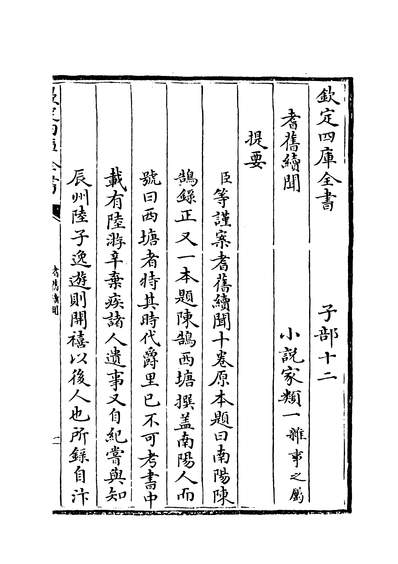 欽定四庫全書　子部十二
耆舊續聞　小說家類一雜事之屬
提要
臣等謹案耆舊續聞十卷原本題曰南陽陳
鵠錄正又一本題陳鵠西塘撰盖南陽人而
號曰西塘者特其時代爵里已不可考書中
載有陸游辛棄疾諸人遺事又自紀嘗與知
辰州陸子逸遊則開禧以後人也所錄自汴
欽定四庫全書
耆舊續聞
一